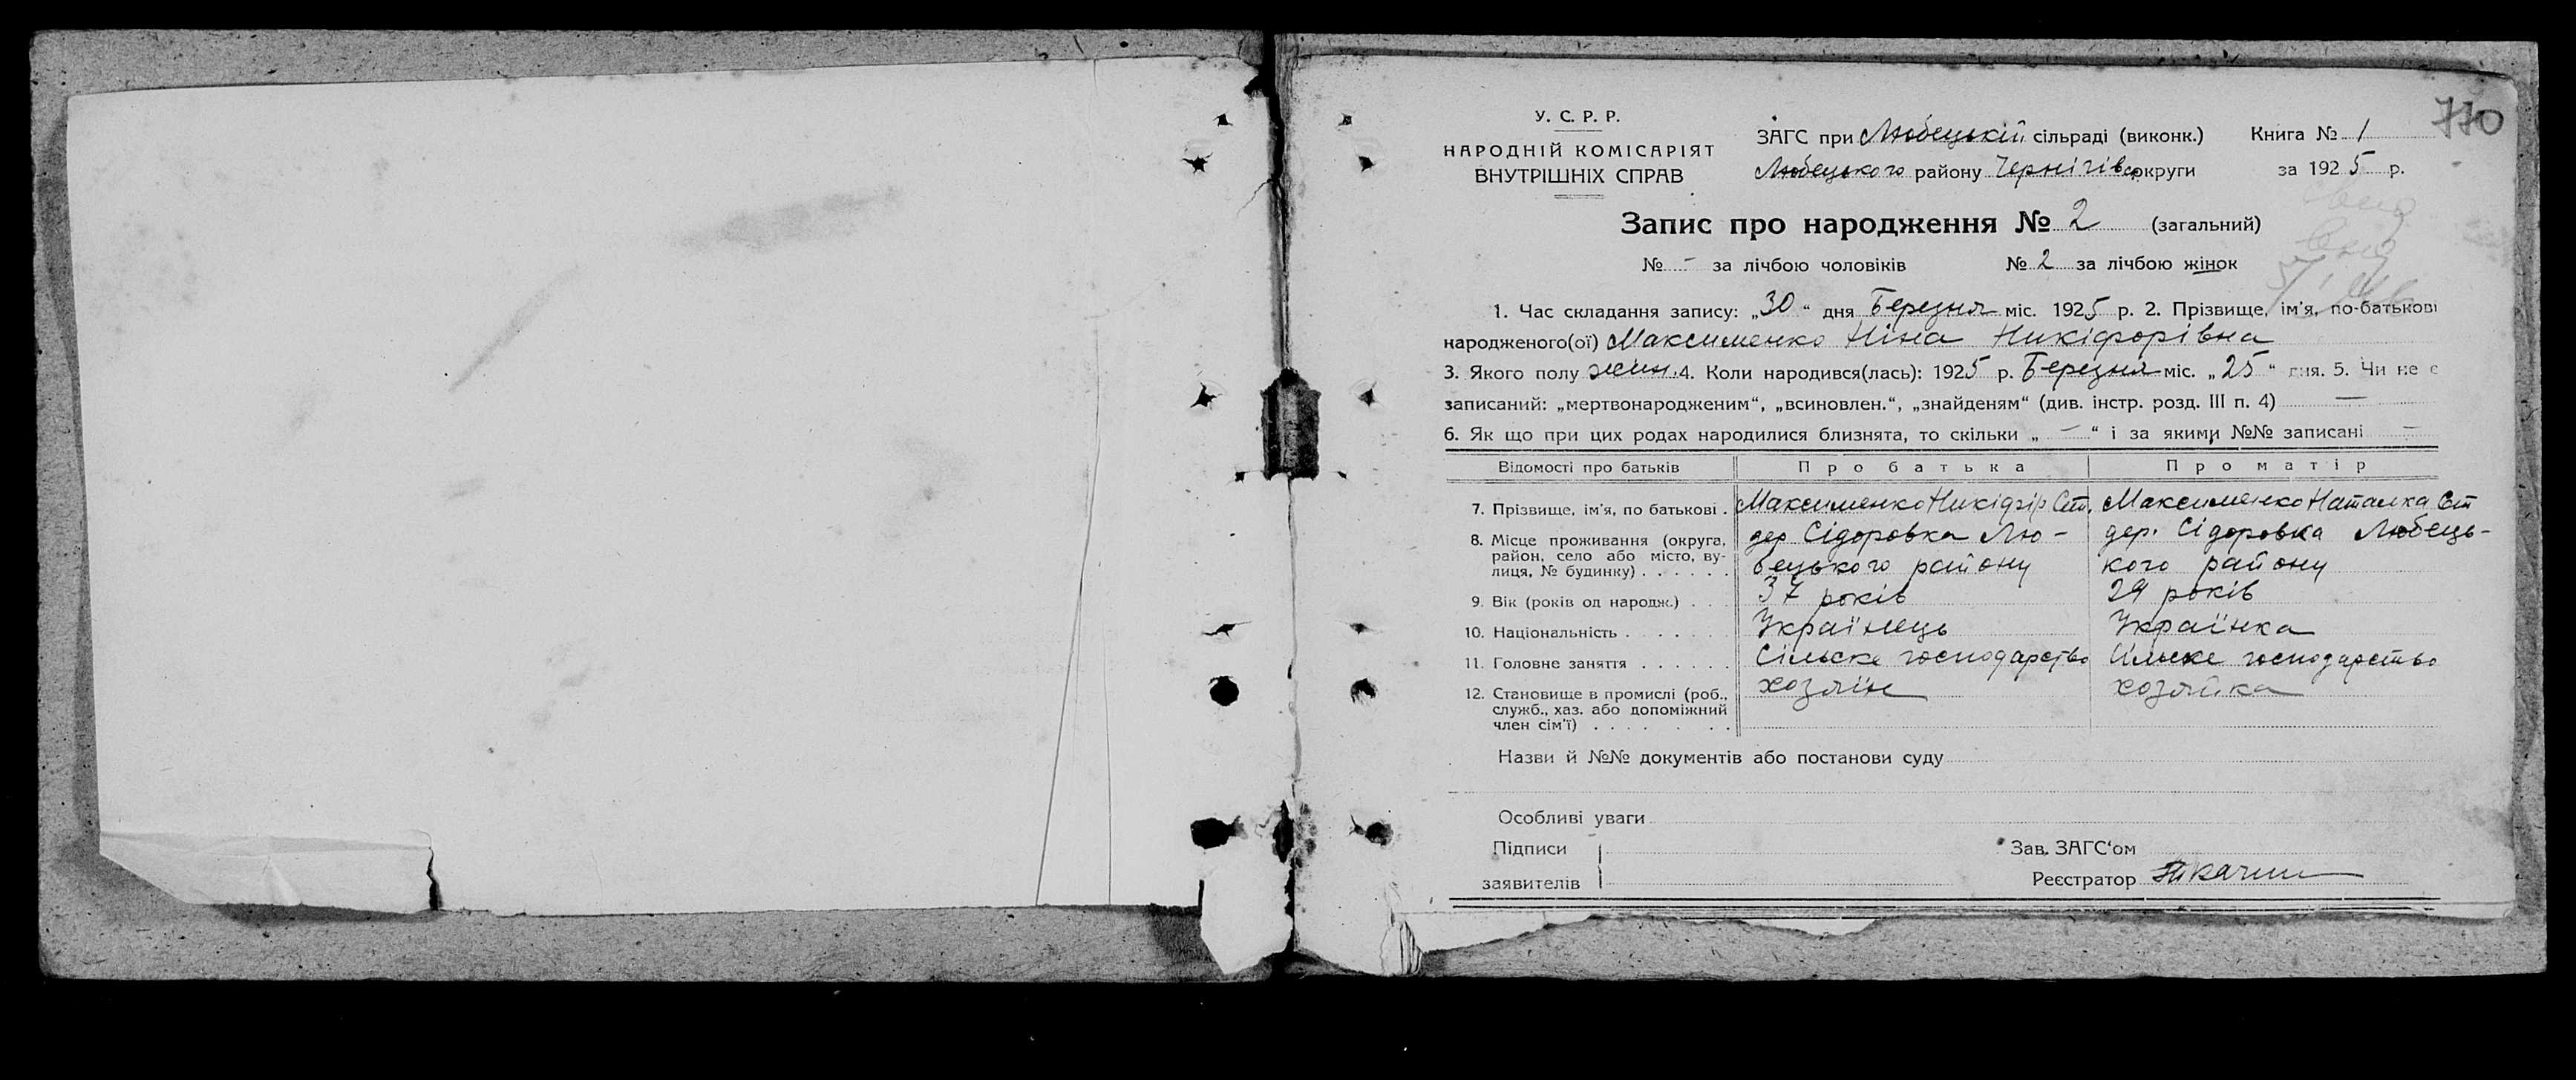 770
У. С. Р. Р.
НАРОДНІЙ КОМІСАРІЯТ
ВНУТРІШНІХ СПРАВ
ЗАГС при Любецькій сільраді (виконк.) Книга № 1
Любецького району Чернігівс округи за 1925 р.
Запис про народження № 2 (загальний)
№ - за лічбою чоловіків № 2 за лічбою жінок
1. Час складання запису: „30“ дня Березня міс. 1925 р. 2. Прізвище, ім'я, по-батькові
народженого(ої) Максименко Ніна Никіфорівна
3. Якого полу жин. 4. Коли народився(лась): 1925 р. Березня міс. „25“ дня. 5. Чи не є
записаний: „мертвонародженим“, „всиновлен.“, „знайденям“ (див. інстр. розд. III п. 4) —
6. Як що при цих родах народилися близнята, то скільки „ — “ і за якими №№ записані —
Відомості про батьків Про батька Про матір
7. Прізвище, ім'я, по батькові . Максименко Никіфір Ст. Максименко Наталка Ст
8. Місце проживання (округа, район, село або місто, вулиця, № будинку) . . . . . .
дер Сідоровка Лю-
бецького району
дер. Сідоровка Любець-
кого району
9. Вік (років од народж.) . . . 37 років 29 років
10. Національність . . . . . . . Українець Українка
11. Головне заняття . . . . . . Сільске господарство Сільске господарство
12. Становище в промислі (роб., служб., хаз. або допоміжний член сім'ї) . . . . . . .
хозяїн хозяйка
Назви й №№ документів або постанови суду
Особливі уваги
Підписи
заявителів
Зав. ЗАГС'ом
Реєстратор